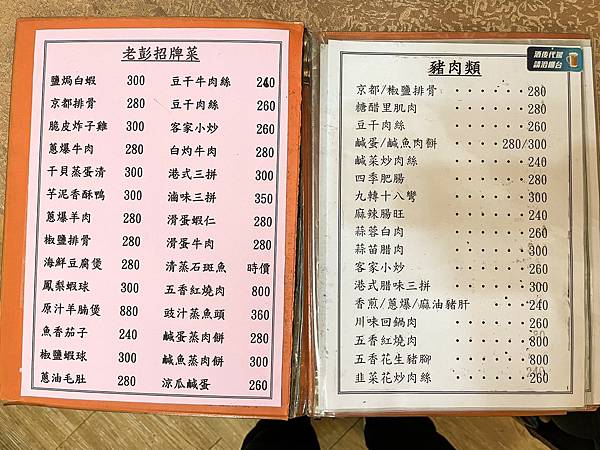 老彭招牌菜
鹽焗白蝦 300 豆干牛肉絲 240
京都排骨 280 豆干肉絲 260
脆皮炸子雞 300 客家小炒 260
蔥爆牛肉 280 白灼牛肉 280
干貝蒸蛋清 300 港式三拼 300
芋泥香酥鴨 300 滷味三拼 350
蔥爆羊肉 280 滑蛋蝦仁 280
椒鹽排骨 280 滑蛋牛肉 280
海鮮豆腐煲 280 清蒸石斑魚 時價
鳳梨蝦球 300 五香紅燒肉 800
原汁羊腩煲 880 豉汁蒸魚頭 360
魚香茄子 240 鹹蛋蒸肉餅 280
椒鹽蝦球 300 鹹魚蒸肉餅 300
蔥油毛肚 280 涼瓜鹹蛋 260
酒後代駕
請洽櫃台
豬肉類
京都/椒鹽排骨 ・・・・・・ 280
糖醋里肌肉 ・・・・・・ 280
豆干肉絲 ・・・・・・ 260
鹹蛋/鹹魚肉餅 ・・・・ 280/300
鹹菜炒肉絲 ・・・・・・ 240
四季肥腸 ・・・・・・ 280
九轉十八彎 ・・・・・・ 300
麻辣腸旺 ・・・・・・ 240
蒜蓉白肉 ・・・・・・ 260
蒜苗腊肉 ・・・・・・ 300
客家小炒 ・・・・・・ 260
港式腊味三拼 ・・・・・・ 300
香煎/蔥爆/麻油豬肝 ・・・・ 240
川味回鍋肉 ・・・・・・ 260
五香紅燒肉 ・・・・・・ 800
五香花生豬腳 ・・・・・・ 800
韭菜花炒肉絲 ・・・・・・ 260